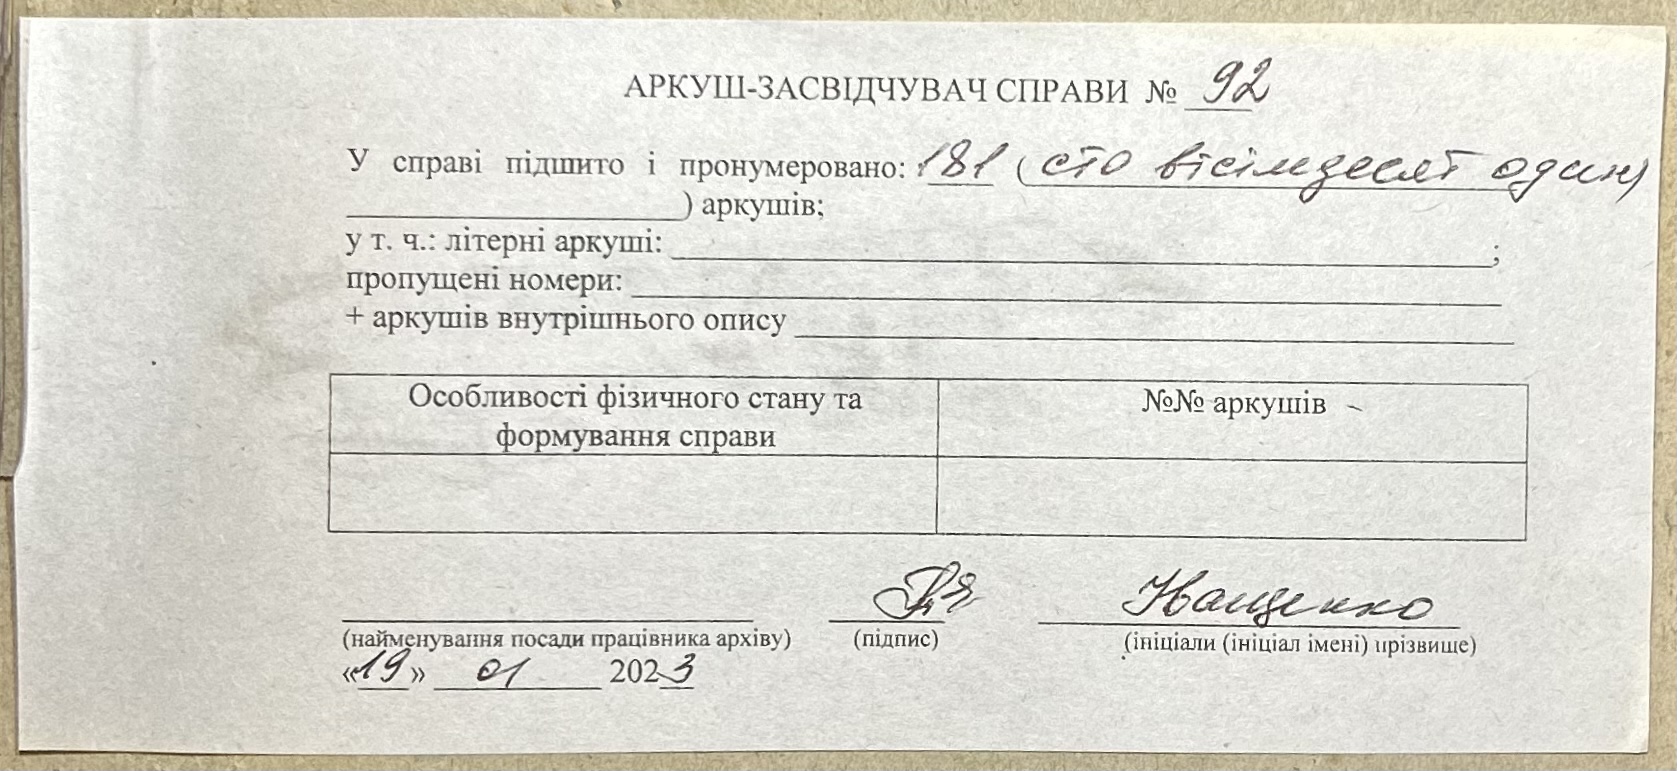 АРКУШ-ЗАСВІДЧУВАЧ СПРАВИ № 92
У справі підшито і пронумеровано: 181 (сто вісімдесят один)
____________________) аркушів;
у т. ч.: літерні аркуші: ____________________;
пропущені номери: ____________________
+ аркушів внутрішнього опису ____________________
Особливості фізичного стану та
формування справи
№№ аркушів
Іващенко
(найменування посади працівника архіву) (підпис) (ініціали (ініціал імені) прізвище)
«19» 01 2023